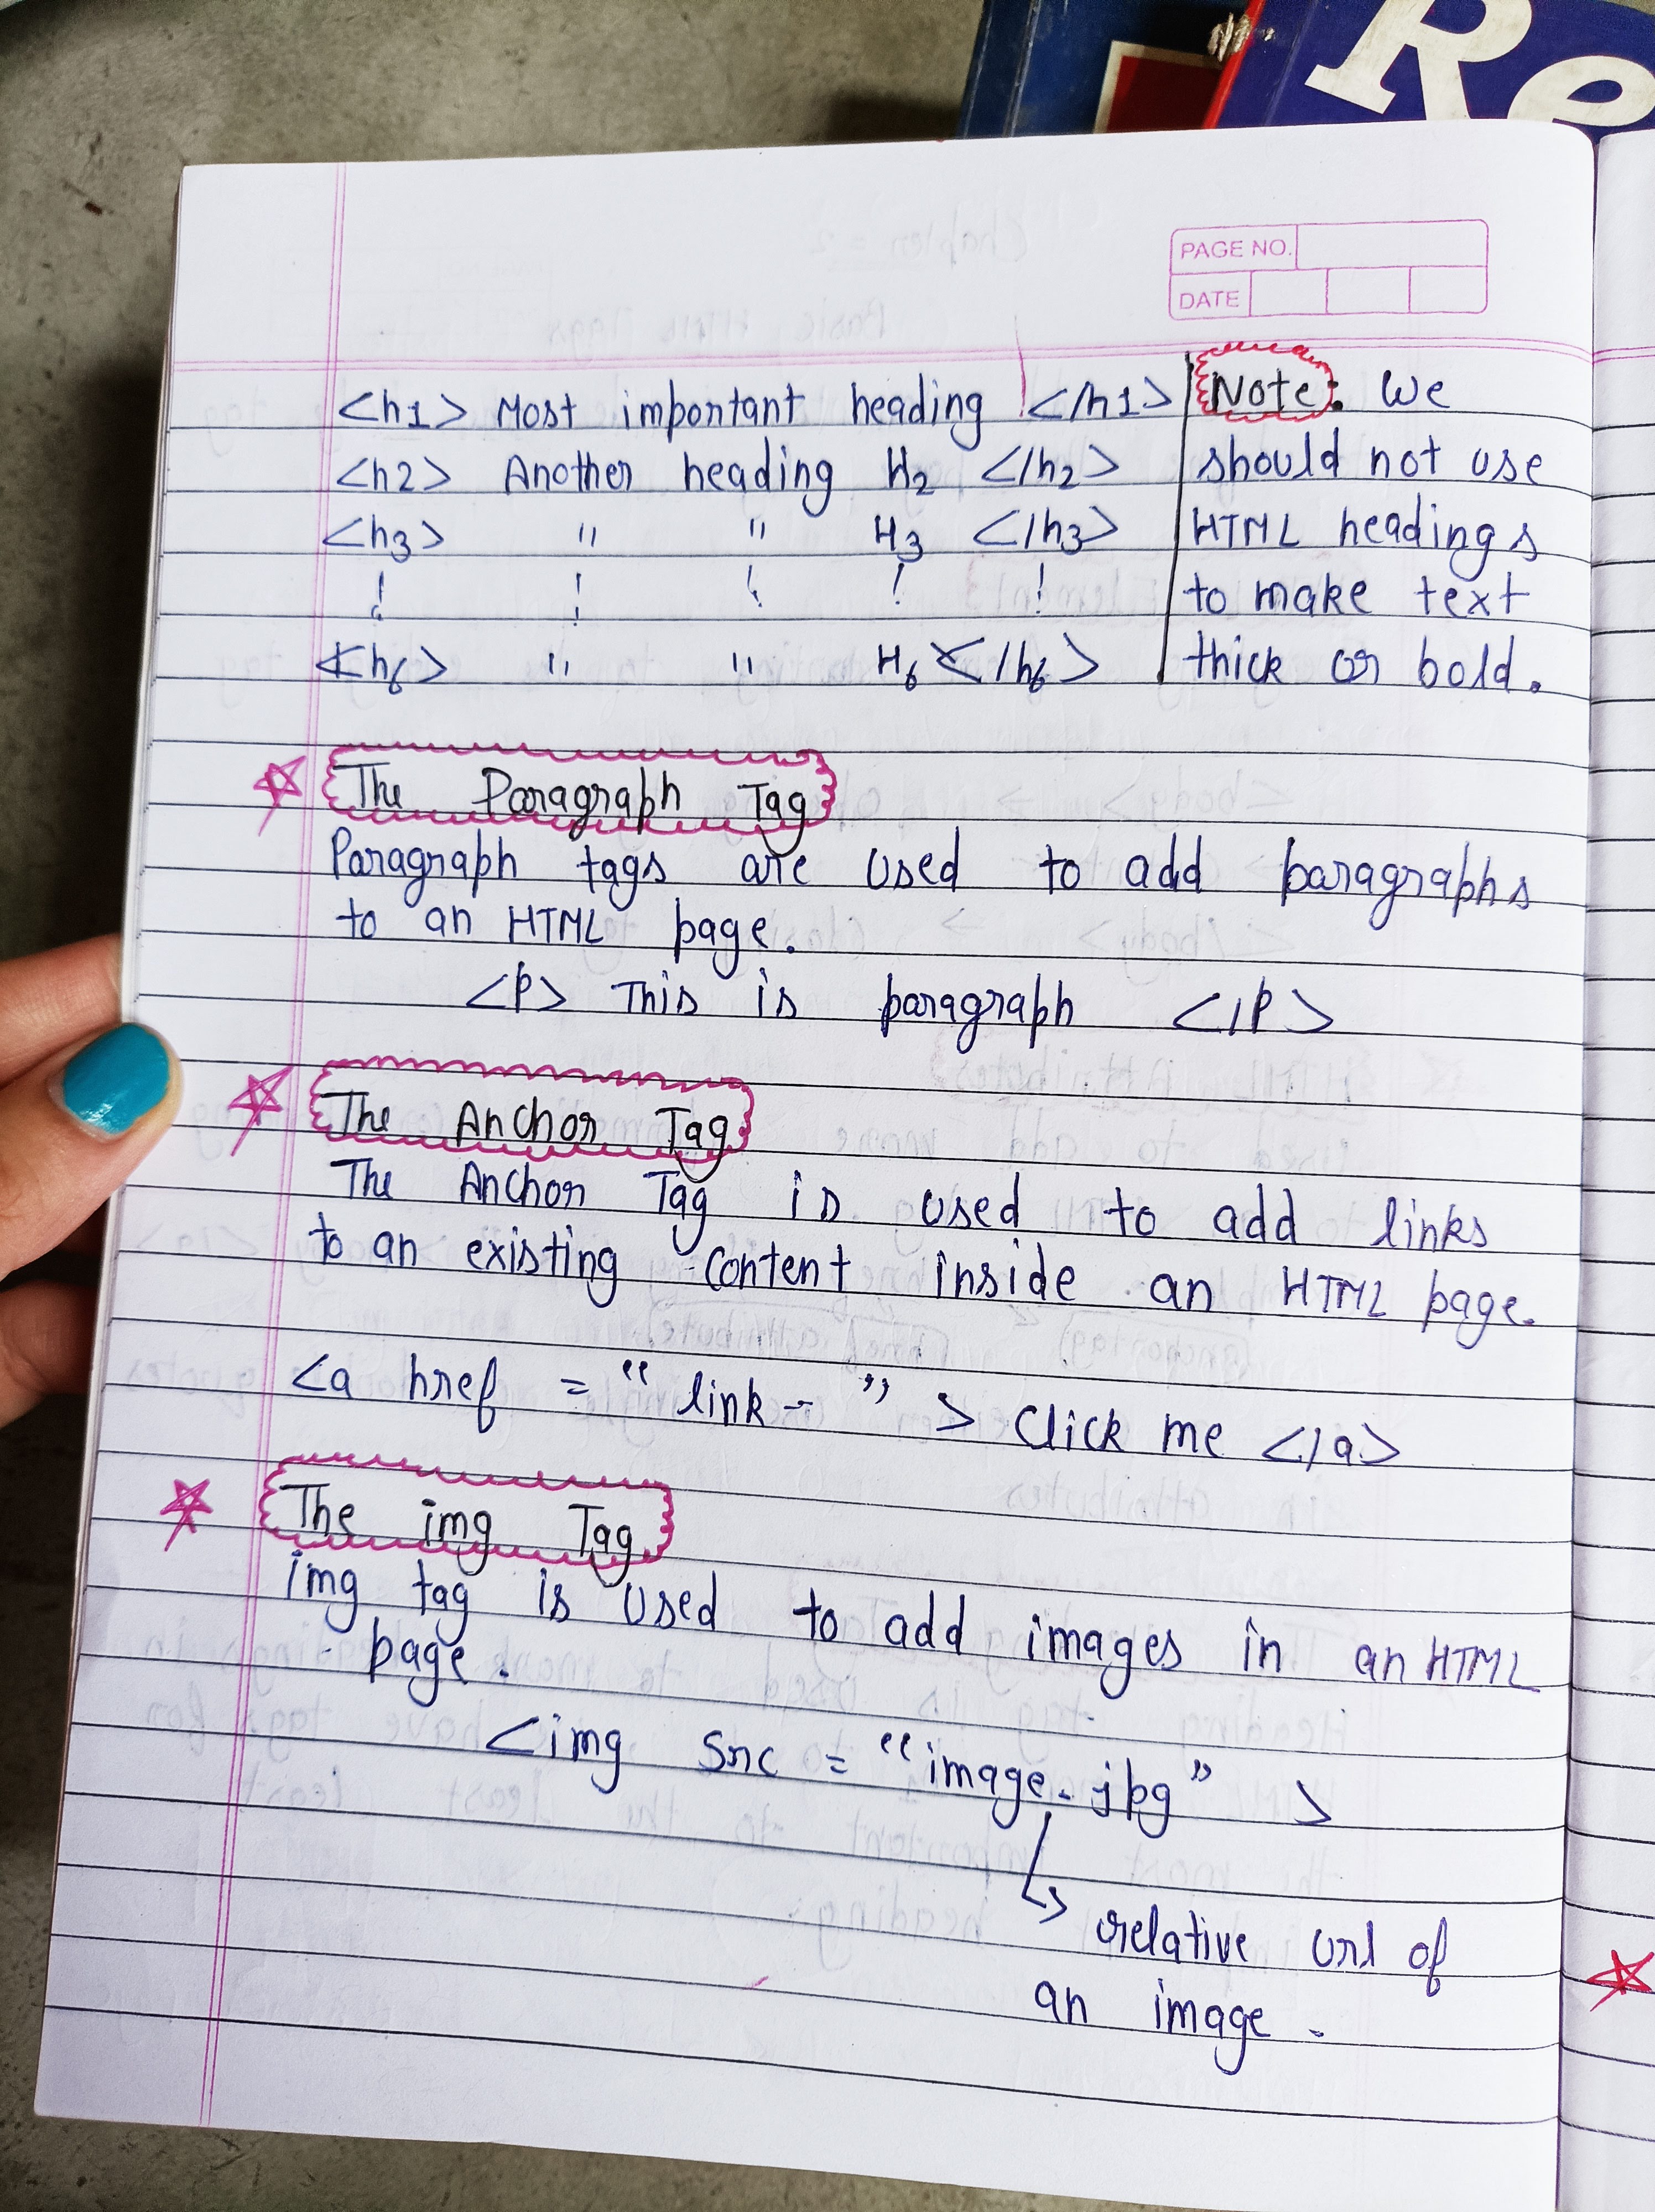 Re
PAGE NO.
DATE
<h1> Most important heading </h1>
<h2> Another heading H2 </h2>
<h3> " " H3 </h3>
<h6> " " H6 </h6>
Note: We
should not use
HTML headings
to make text
thick or bold.
The Paragraph Tag
Paragraph tags are used to add paragraphs
to an HTML page.
<p> This is paragraph </p>
The Anchor Tag
The Anchor Tag is used to add links
to an existing content inside an HTML page.
<a href = “ link - ” > Click me </a>
The img Tag
img tag is used to add images in an HTML
page.
<img src = “image.jpg” >
relative url of
an image.